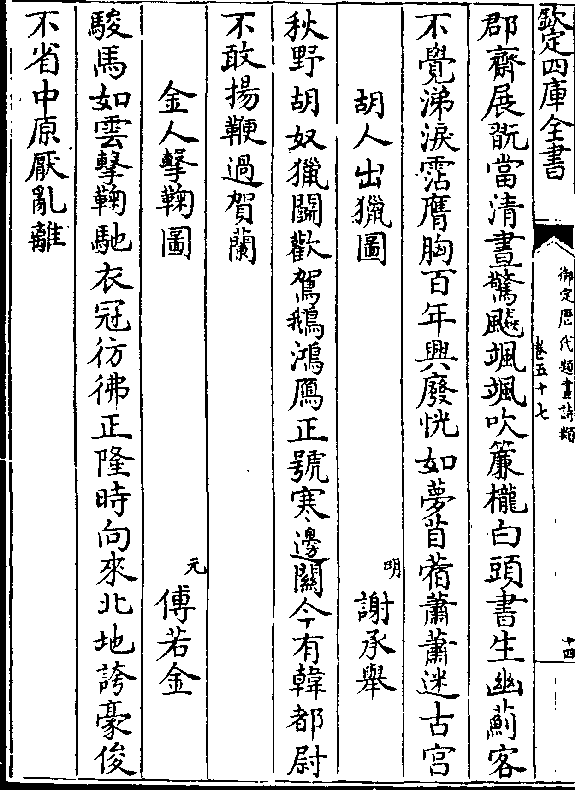 欽定四庫全書
御定歴代題畫詩類
卷五十七
十四
郡齋展翫當清晝驚飈颯颯吹簾櫳白頭書生幽薊客
不覺涕淚霑膺胸百年興廢恍如夢苜蓿蕭蕭迷古宫
胡人出獵圖
明
謝承舉
秋野胡奴獵闘歡駕鵝鴻鴈正號寒邊關今有韓都尉
不敢揚鞭過賀蘭
金人擊鞠圖
元
傅若金
駿馬如雲擊鞠馳衣冠彷彿正隆時向來北地誇豪俊
不省中原厭亂離